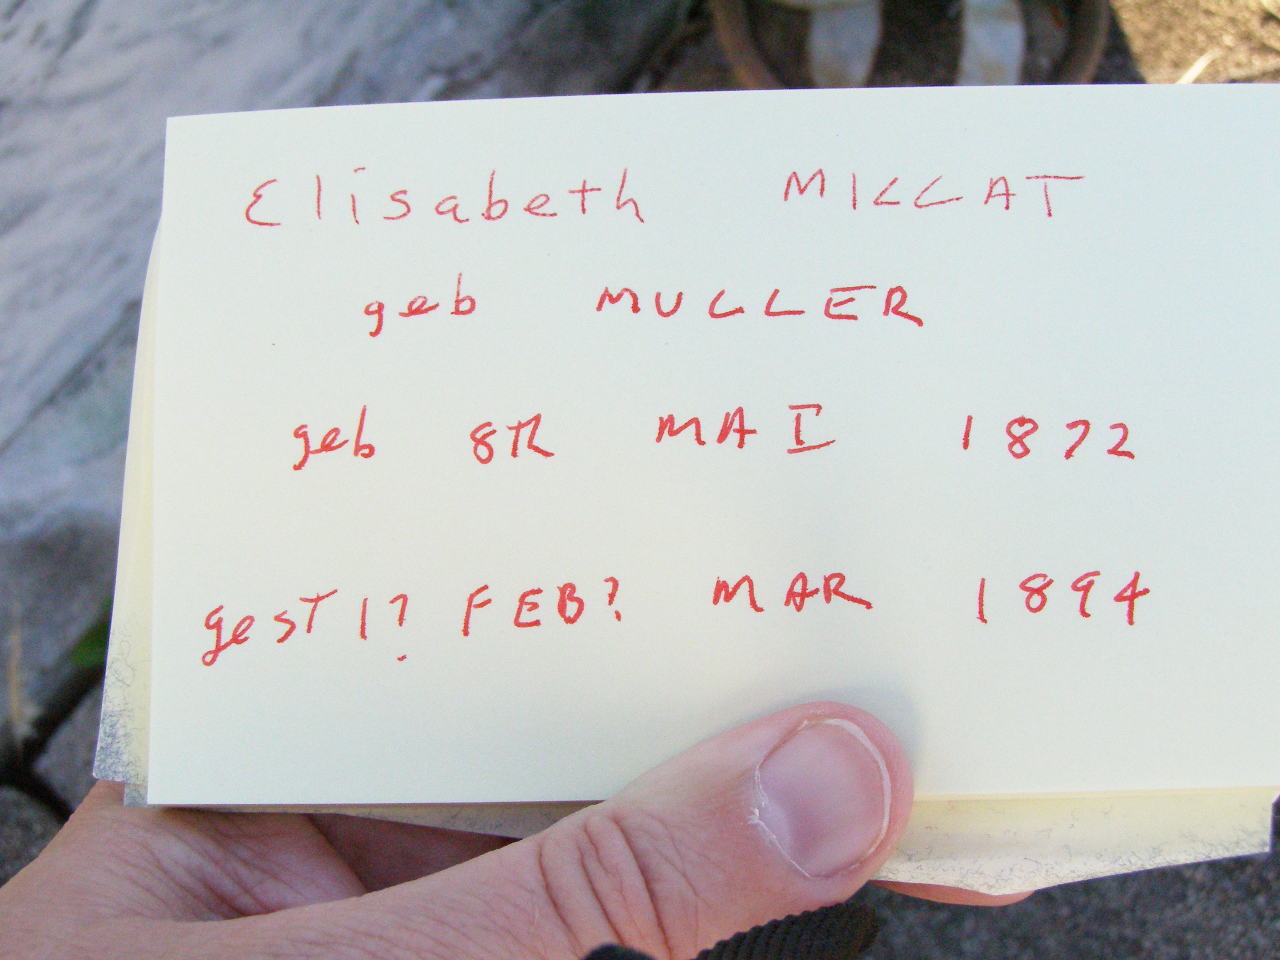 Elisabeth MILLAT
geb MULLER
geb 8R MAI 1872
gest 1? FEB? MAR 1894